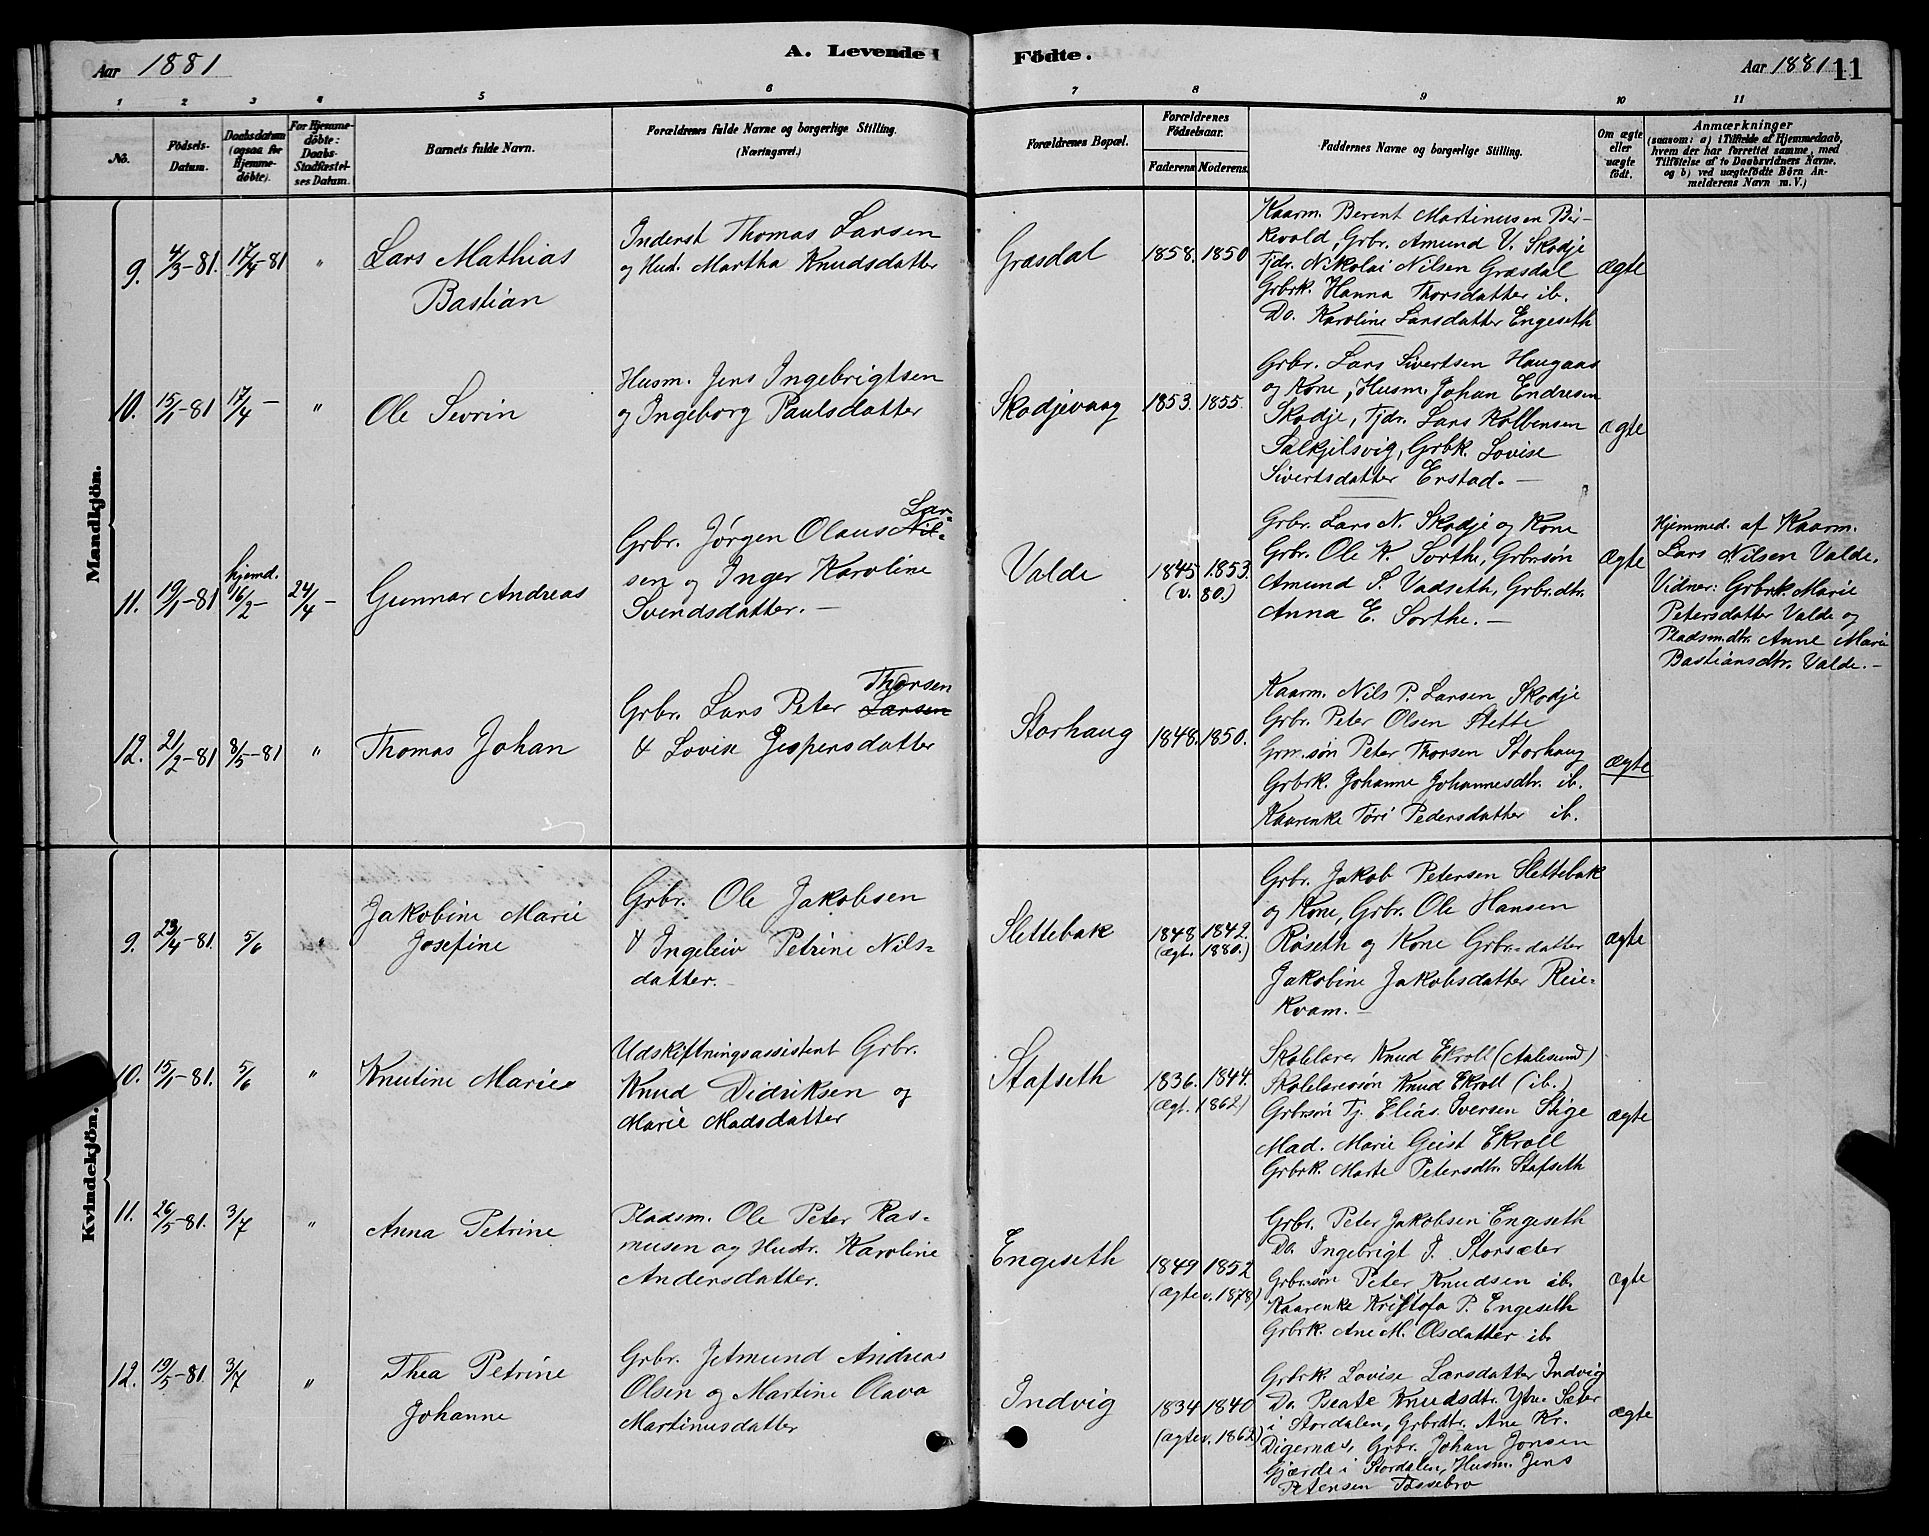 Aar 1881
A. Levende
Födte.
Aar 1881
11
1 2 3 4 5 6 7 8 9 10 11
No.
Födsels-
Datum.
Daabsdatum
(ogsaa for
Hjemme-
döbte).
For Hjemme-
döbte:
Daabs-
Stadfæstel-
ses Datum.
Barnets fulde Navn.
Forældrenes fulde Navne og borgerlige Stilling.
(Næringsvei.)
Forældrenes Bopæl.
Forældrenes
Födselsaar.
Faderens Moderens.
Faddernes Navne og borgerlige Stilling.
Om ægte
eller
uægte
födt.
Anmærkninger
(saasom: a) i Tilfælde af Hjemmedaab,
hvem der har forrettet samme, med
Tilföielse af to Daabsvidners Navne.
og b) ved uægtefödte Börn An-
melderens Navn m. V.)
Mandkjön.
9. 4/3-81. 17/4-81 "
Lars Mathias
Bastian
Inderst Thomas Larsen
og Hud. Martha Knudsdatter
Græsdal
1858. 1850
Kaarm. Berent Martinusen Bir-
kevold, Grbr. Amund V. Skodje
Tjdr. Nikolai Nilsen Græsdal
Grbrk. Hanna Thorsdatter ib.
Do. Karoline Larsdatter Engeseth
ægte
10. 15/1-81 17/4- "
Ole Sevrin
Husm. Jens Ingebrigtsen
og Ingeborg Paulsdatter
Skodjevaag
1853. 1855.
Grbr. Lars Sivertsen Haugaas
og Kone, Husm. Johan Endresen
Skodje, Tjdr. Lars Kolbensen
Salkjilsvig, Grbk. Lovise
Sivertsdatter Erstad.-
ægte
11. 19/1-81 hjemd. 16/2- 24/4-
Gunnar Andreas
Lar-
Grbr. Jørgen Olaus Nil-
sen og Inger Karoline
Svendsdatter.-
Valde
1845 1853.
(v. 80.)
Grbr. Lars N. Skodje og Kone
Grbr. Ole K. Sorthe, Grbrsøn
Amund P. Vadseth, Grbr.dtr.
Anna E. Sorthe.-
ægte
Hjemmed. af Kaarm.
Lars Nilsen Valde.
Vidner: Grbrk. Marie
Petersdatter Valde og
Pladsm.dtr. Anne Marie
Bastiansdtr. Valde.-
12. 21/2-81 8/5-81 "
Thomas Johan
Thorsen
Grbr. Lars Peter Larsen
& Lovise Jespersdatter
Storhaug
1848. 1850.
Kaarm. Nils P. Larsen Skodje
Grbr. Peter Olsen Slette
Grbr.søn Peter Thorsen Storhaug
Grbrk. Johanne Johannesdtr. ib.
Kaarenke Tøri Pedersdatter ib.
ægte
Kvindekjön.
9. 23/4-81. 5/6 "
Jakobine Marie
Josefine
Grbr. Ole Jakobsen
& Ingeleiv Petrine Nils-
datter.-
Slettebak
1848 1842.
(ægt. 1880.)
Grbr. Jakob Petersen Slettebak
og Kone, Grbr. Ole Hansen
Røseth og Kone Grbr-datter
Jakobine Jakobsdatter Reie-
kvam.-
ægte
10. 15/1-81. 5/6 "
Knutine Marie
Udskiftningsassistent Grbr.
Knud Didriksen og
Marie Madsdatter
Stafseth
1836. 1844.
(ægt. 1862)
Skolelærer Knud Ekroll (Aalesund)
Skolelærersøn Knud Ekroll (ib.)
Grbrsøn Tj. Elias Iversen Stige
Mad. Marie Geist Ekroll
Grbrk. Marte Petersdtr. Stafseth
ægte
11. 26/5-81. 3/7 "
Anna Petrine
Pladsm. Ole Peter Ras-
musen og Hustr. Karoline
Andersdatter.
Engeseth
1849 1852
(ægte v. 1878)
Grbr. Peter Jakobsen Engeseth
Do. Ingebrigt J. Storsæter
Grbr.søn Peter Knudsen ib.
Kaarenke Kristofa P. Engeseth
Grbrk. Ane M. Olsdatter ib.
ægte
12. 19/5-81. 3/7 "
Thea Petrine
Johanne
Grbr. Jetmund Andreas
Olsen og Martine Olava
Martinusdatter
Indvig
1834 1840
(ægte v. 1862)
Grbrk. Lovise Larsdatter Indvig
Do. Beate Knudsdtr. Ytre Sæter
i Stordalen, Grbrdtr. Ane Kr.
Digernæs, Grbr. Johan Jonsen
Gjærde i Stordalen, Husm. Jens
Petersen Tassebro
ægte